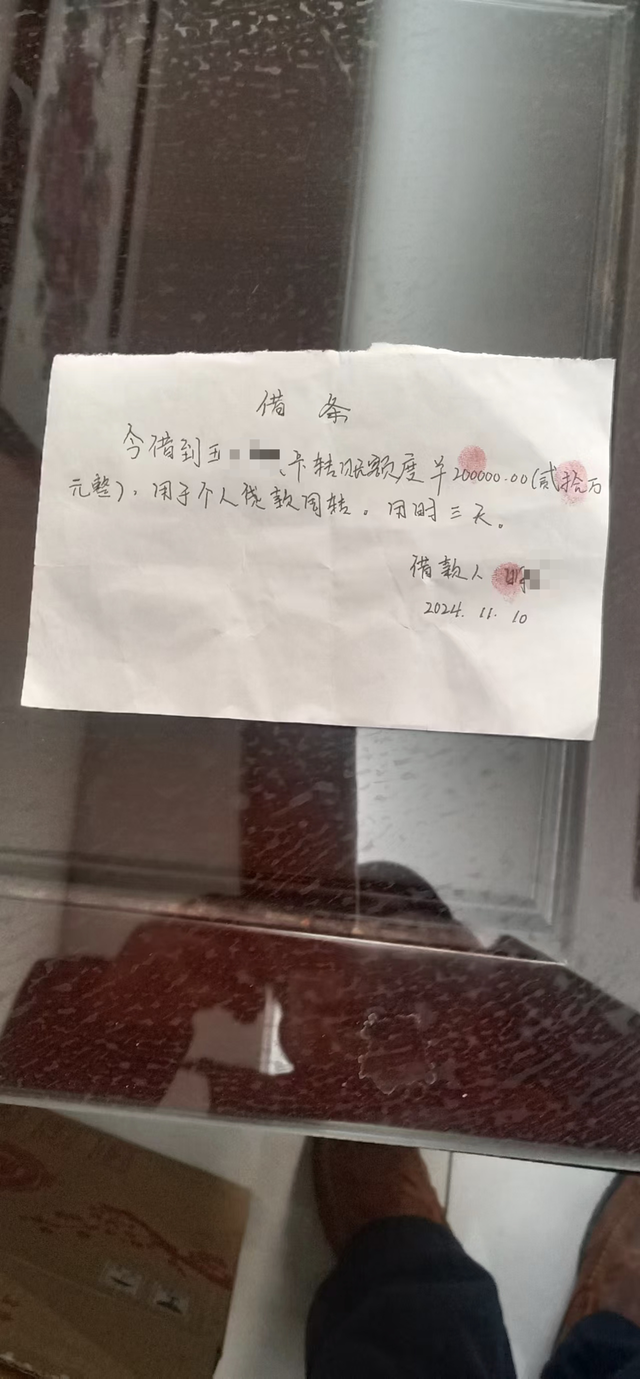 借条
今借到王 卡转账额度¥200000.00(贰拾万
元整)，用于个人贷款周转。用时三天。
借款人
2024.11.10